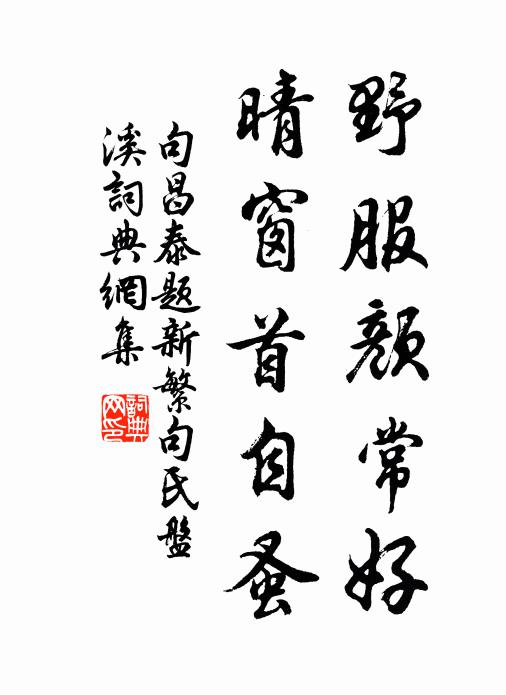 野服顏常好
晴窗首自蚤
句昌泰题新繁句氏盤
溪詞典網集
詞典網印